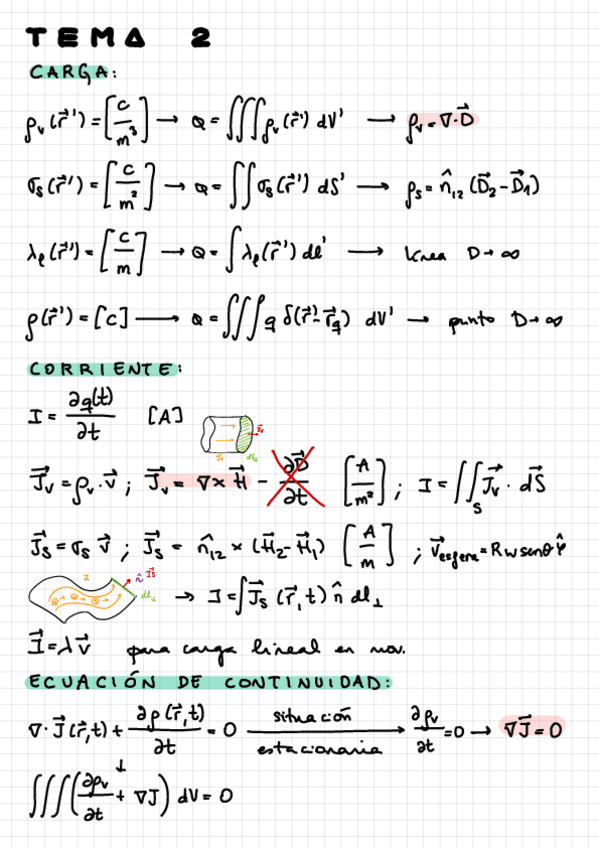 TEMA 2
CARGA:
ρᵥ(r⃗') = [C/m³] → Q = ∭ρᵥ(r⃗') dV' → ρᵥ = ∇·D⃗
σₛ(r⃗') = [C/m²] → Q = ∬σₛ(r⃗') dS' → ρₛ = n̂₁₂(D⃗₂-D⃗₁)
λₗ(r⃗') = [C/m] → Q = ∫λₗ(r⃗') dl' → línea D→∞
ρ(r⃗') = [C] → Q = ∭q δ(r⃗'-r⃗q) dV' → punto D→∞
CORRIENTE:
I = ∂q(t)/∂t [A]
J⃗ᵥ = ρᵥ·v⃗ ; J⃗ᵥ = ∇×H⃗ - ∂D⃗/∂t [A/m²] ; I = ∬ₛ J⃗ᵥ · dS⃗
J⃗ₛ = σₛ v⃗ ; J⃗ₛ = n̂₁₂×(H⃗₂-H⃗₁) [A/m] ; v⃗esfera = Rωsenθ φ̂
I n̂ J⃗ₛ dl⊥ → I = ∫J⃗ₛ(r⃗,t) n̂ dl⊥
I⃗ = λv⃗ para carga lineal en mov.
ECUACIÓN DE CONTINUIDAD:
∇·J⃗(r⃗,t) + ∂ρ(r⃗,t)/∂t = 0 situación estacionaria → ∂ρᵥ/∂t = 0 → ∇J⃗ = 0
↓
∭(∂ρᵥ/∂t + ∇J) dV = 0